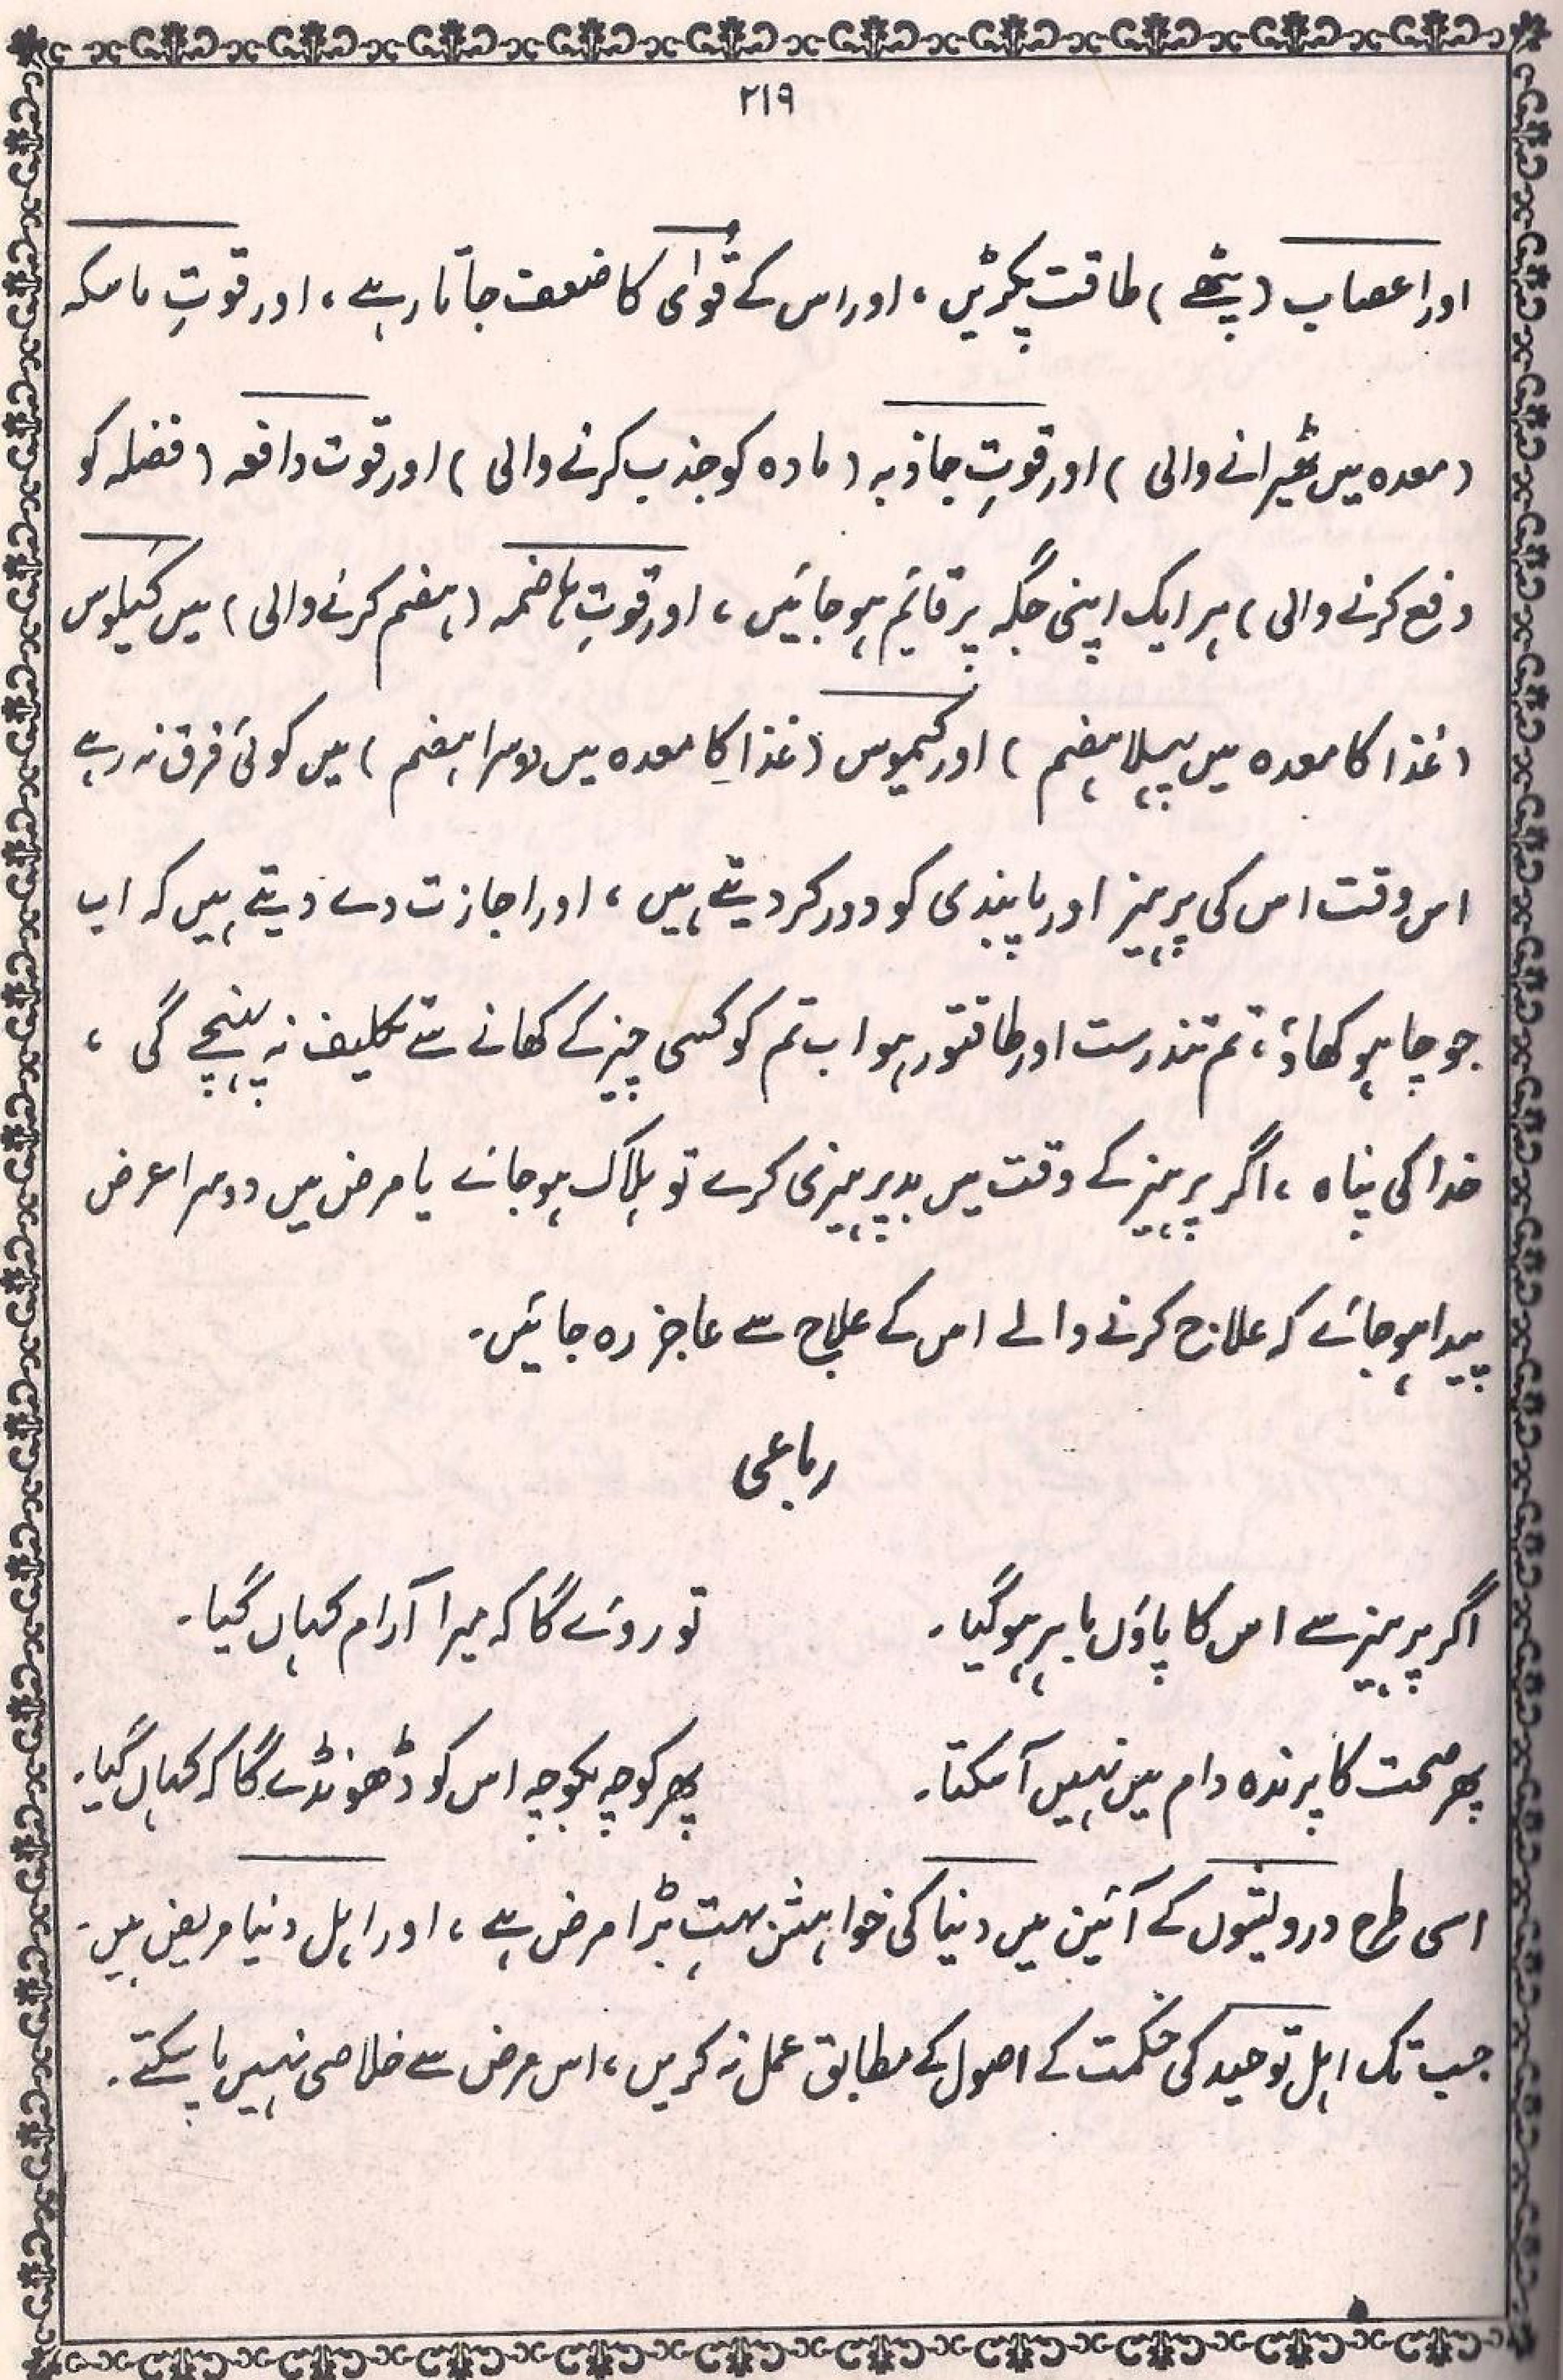 ۲۱۹
اور اعصاب (پٹھے) طاقت پکڑیں، اور اس کے قُوٰی کا ضعف جاتا رہے، اور قوتِ ماسکہ
(معدہ میں ٹھیرانے والی) اور قوتِ جاذبہ (مادہ کو جذب کرنے والی) اور قوت دافعہ (فضلہ کو
دفع کرنے والی) ہر ایک اپنی جگہ پر قائم ہو جائیں، اور قوتِ ہاضمہ (ہضم کرنے والی) میں کیلوس
(غذا کا معدہ میں پہلا ہضم) اور کیموس (غذا کا معدہ میں دوسرا ہضم) میں کوئی فرق نہ رہے
اس وقت اس کی پرہیز اور پابندی کو دور کر دیتے ہیں، اور اجازت دے دیتے ہیں کہ اب
جو چاہو کھاؤ، تم تندرست اور طاقتور ہو اب تم کو کسی چیز کے کھانے سے تکلیف نہ پہنچے گی،
خدا کی پناہ، اگر پرہیز کے وقت میں بدپرہیزی کرے تو ہلاک ہو جائے یا مرض میں دوسرا عرض
پیدا ہو جائے کہ علاج کرنے والے اس کے علاج سے عاجز رہ جائیں۔
رباعی
اگر پرہیز سے اس کا پاؤں باہر ہو گیا۔ تو روئے گا کہ میرا آرام کہاں گیا۔
پھر صحت کا پرندہ دام میں نہیں آسکتا۔ پھر کوچہ بکوچہ اس کو ڈھونڈے گا کہ کہاں گیا۔
اسی طرح درویشوں کے آئین میں دنیا کی خواہش بہت بڑا مرض ہے، اور اہل دنیا مریض ہیں۔
جب تک اہل توحید کی حکمت کے اصول کے مطابق عمل نہ کریں، اس مرض سے خلاصی نہیں پا سکتے۔